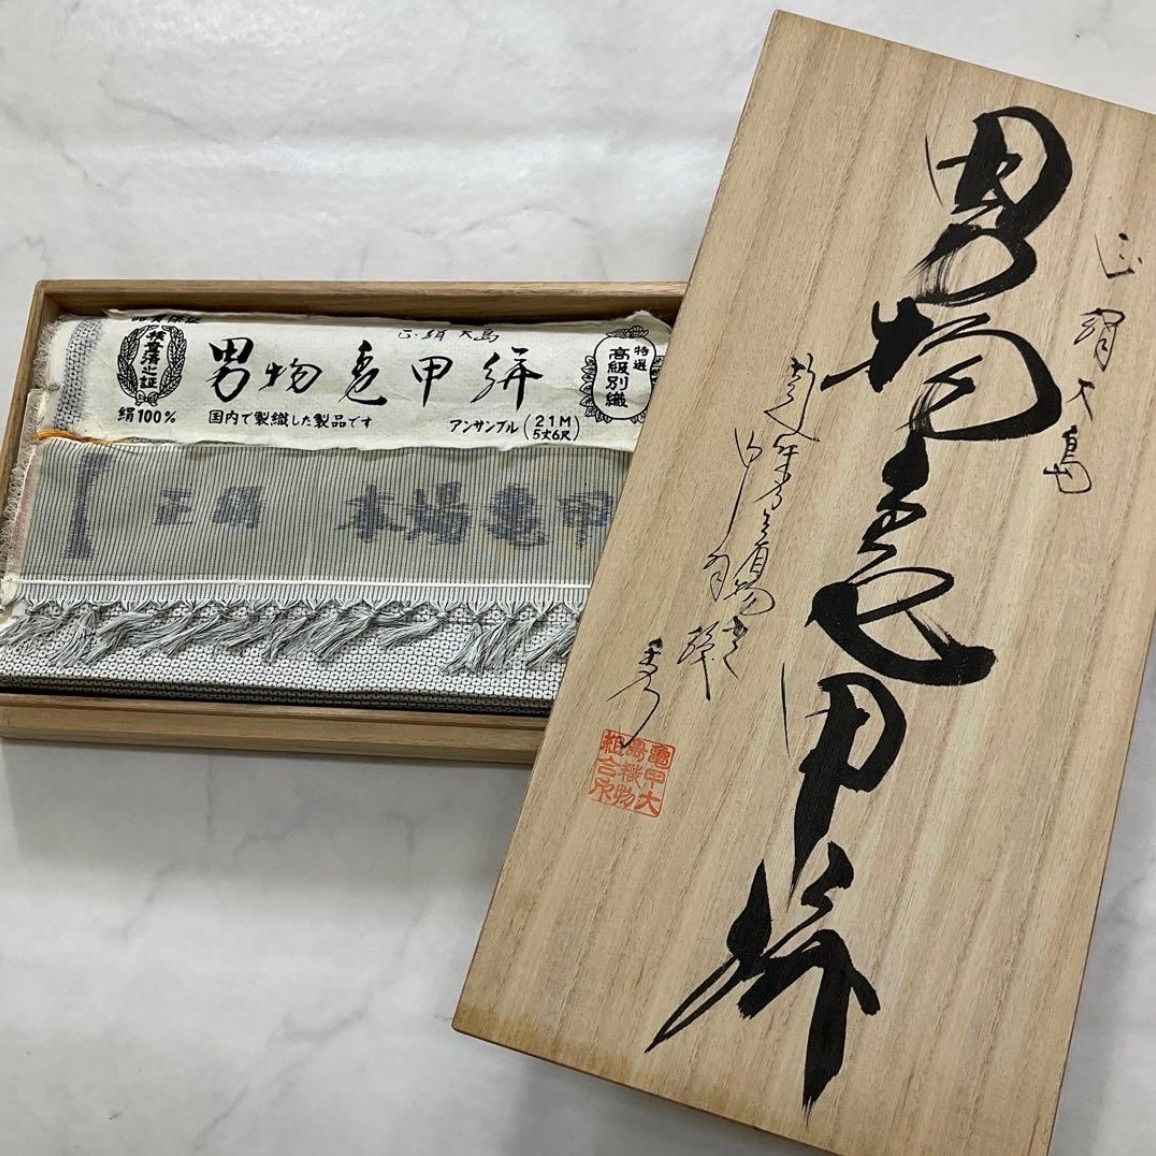 検査済之証
絹100%
正絹大島
男物亀甲絣
国内で製織した製品です
アンサンブル(21M 5丈6尺)
特選
高級別織
正絹 本場亀甲
正絹大島
男物亀甲絣
亀甲大
島織物
組合承